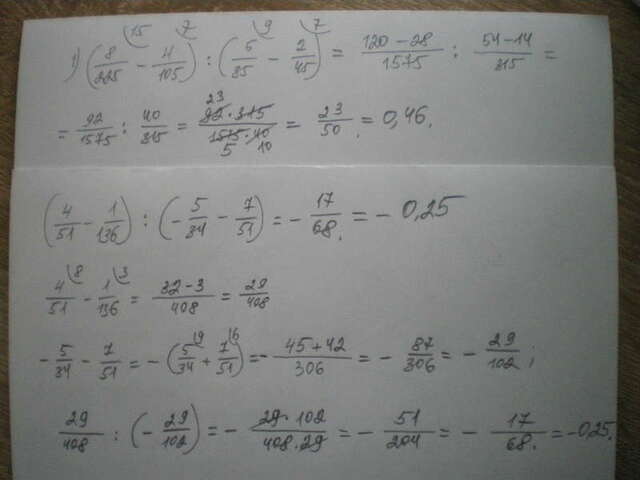 1) (8/225 - 4/105) : (6/35 - 2/45) = 120-28/1575 : 54-14/315 =
= 92/1575 : 40/315 = 92·315/1575·40 = 23/50 = 0,46.
(4/51 - 1/136) : (-5/34 - 7/51) = -17/68 = -0,25
4/51 - 1/136 = 32-3/408 = 29/408
-5/34 - 7/51 = -(5/34 + 7/51) = -45+42/306 = -87/306 = -29/102;
29/408 : (-29/102) = -29·102/408·29 = -51/204 = -17/68 = -0,25.